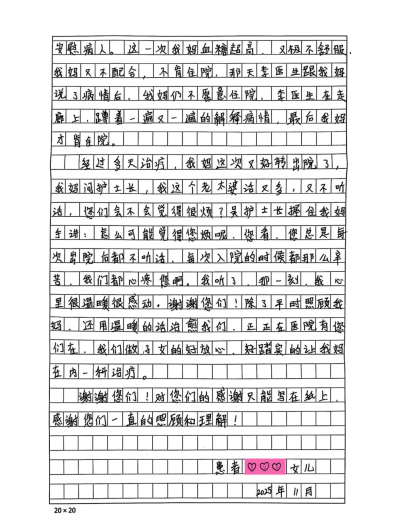 安慰病人。这一次我妈血糖超高,又极不舒服,
我妈又不配合,不肯住院,那天李医生跟我妈
说了病情后,我妈仍不愿意住院,李医生在走
廊上,蹲着一遍又一遍的解释病情,最后我妈
才肯住院。
经过多天治疗,我妈这次又好转出院了,
我妈问护士长,我这个老太婆话又多,又不听
话,您们会不会觉得很烦?吴护士长握住我妈
手讲:怎么可能觉得您烦呢,您看,您总是每
次出院后都不听话,每次入院的时候都那么辛
苦,我们都心疼您啊。我听了,那一刻,我心
里很温暖很感动。谢谢您们!除了平时照顾我
妈,还用温暖的话治愈我们,正正在医院有您
们在,我们做子女的好放心,好踏实的让我妈
在内一科治疗。
谢谢您们!对您们的感谢只能写在纸上,
感谢您们一直的照顾和理解!
患者♡♡♡女儿
2025年11月
20×20